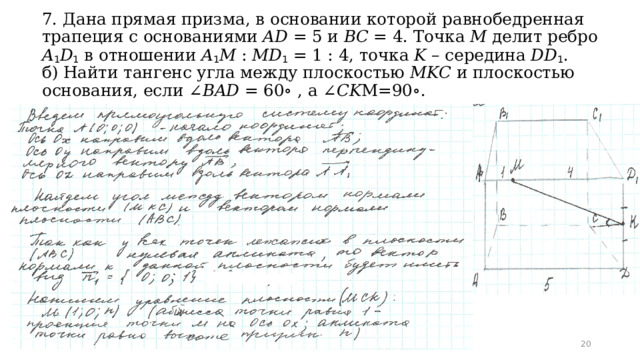 7. Дана прямая призма, в основании которой равнобедренная
трапеция с основаниями AD = 5 и BC = 4. Точка M делит ребро
A₁D₁ в отношении A₁M : MD₁ = 1 : 4, точка K – середина DD₁.
б) Найти тангенс угла между плоскостью MKC и плоскостью
основания, если ∠BAD = 60∘ , а ∠CKM=90∘.
Введем прямоугольную систему координат:
Точка A(0;0;0) - начало координат;
Ось Ox направим вдоль вектора AB;
Ось Oy направим вдоль вектора перпендику-
лярного вектору AB;
Ось Oz направим вдоль вектора AA₁
Найдем угол между вектором нормали
плоскости (MKC) и вектором нормали
плоскости (ABC)
Так как у всех точек лежащих в плоскости
(ABC) нулевая аппликата, то вектор
нормали к данной плоскости будет иметь
вид n₁ = { 0; 0; 1}
Напишем уравнение плоскости (MCK):
M(1;0;h) (абсцисса точки равна 1-
проекция точки M на Ось Ox; аппликата
точки равна высоте призмы h)
B₁ C₁
A₁ 1 M 4 D₁
B C K
A 5 D
20